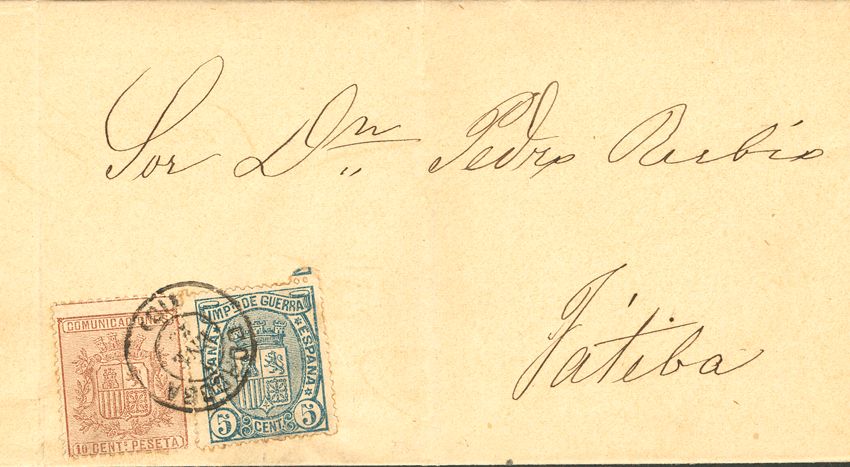 Sor Dn Pedro Rubio
Játiba
COMUNICACIONES
10 CENTs PESETA
IMPto DE GUERRA
ESPAÑA
ESPAÑA
5 CENTs 5